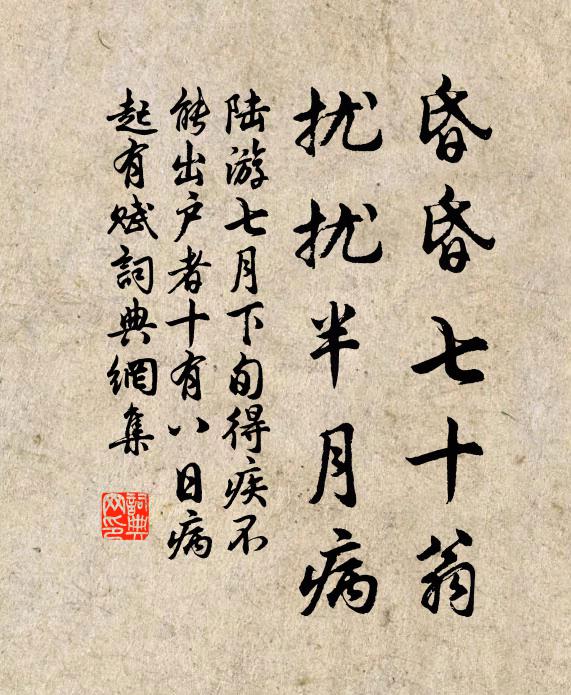 昏昏七十翁
扰扰半月病
陆游七月下旬得疾不
能出户者十有八日病
起有赋詞典網集
詞典
网印